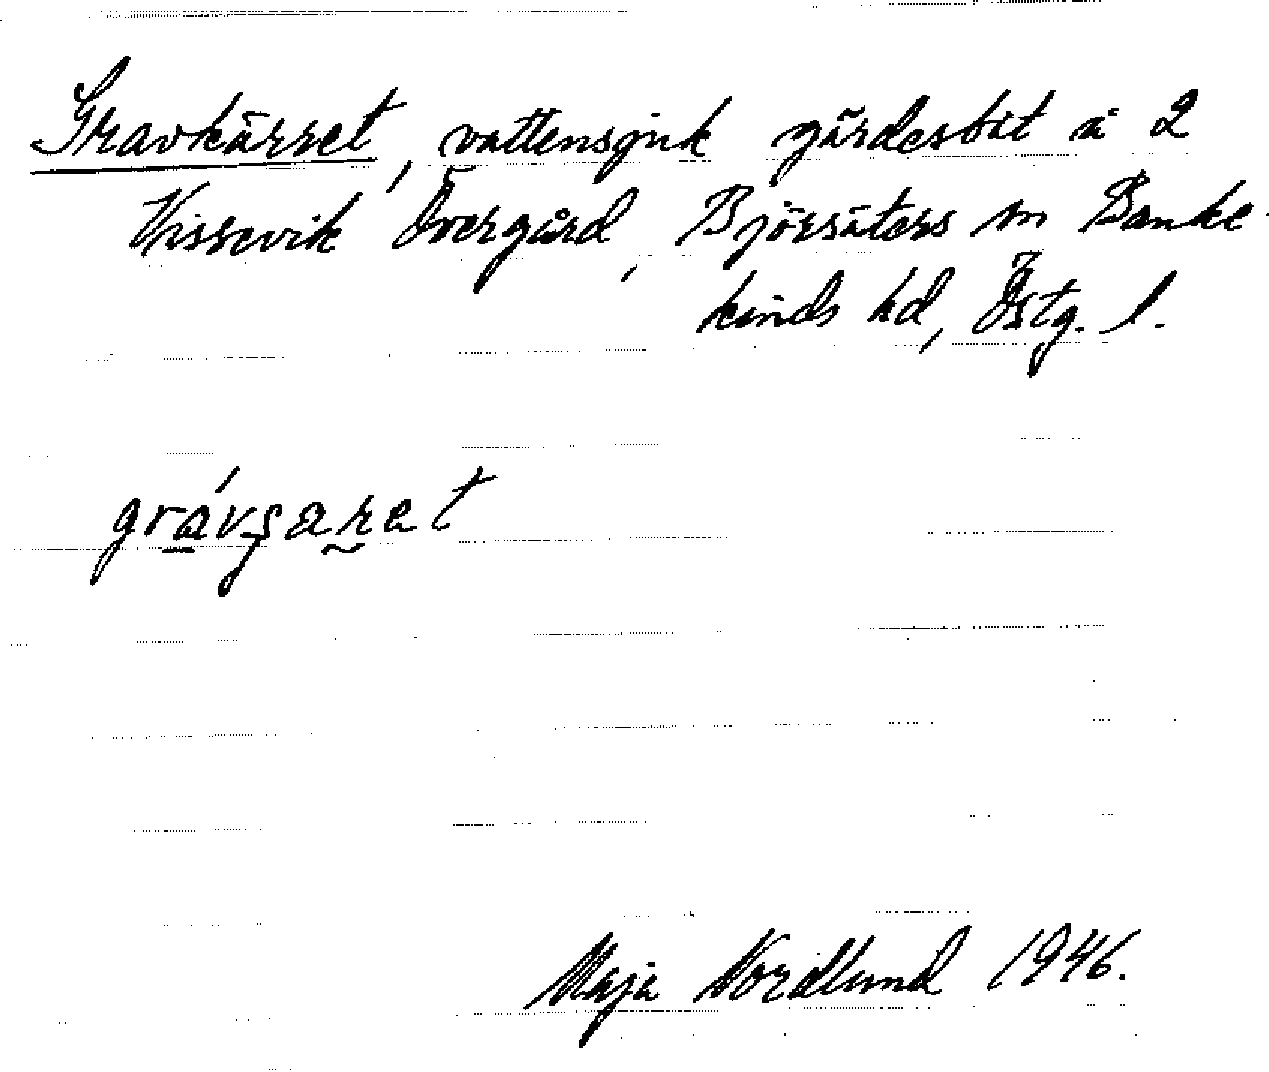 Gravkärret, vattensjuk gärdesbit å 2
Vissevik Övergård, Björsäters sn Banke-
kinds hd, Östg. l.
Maja Nordlund 1946.